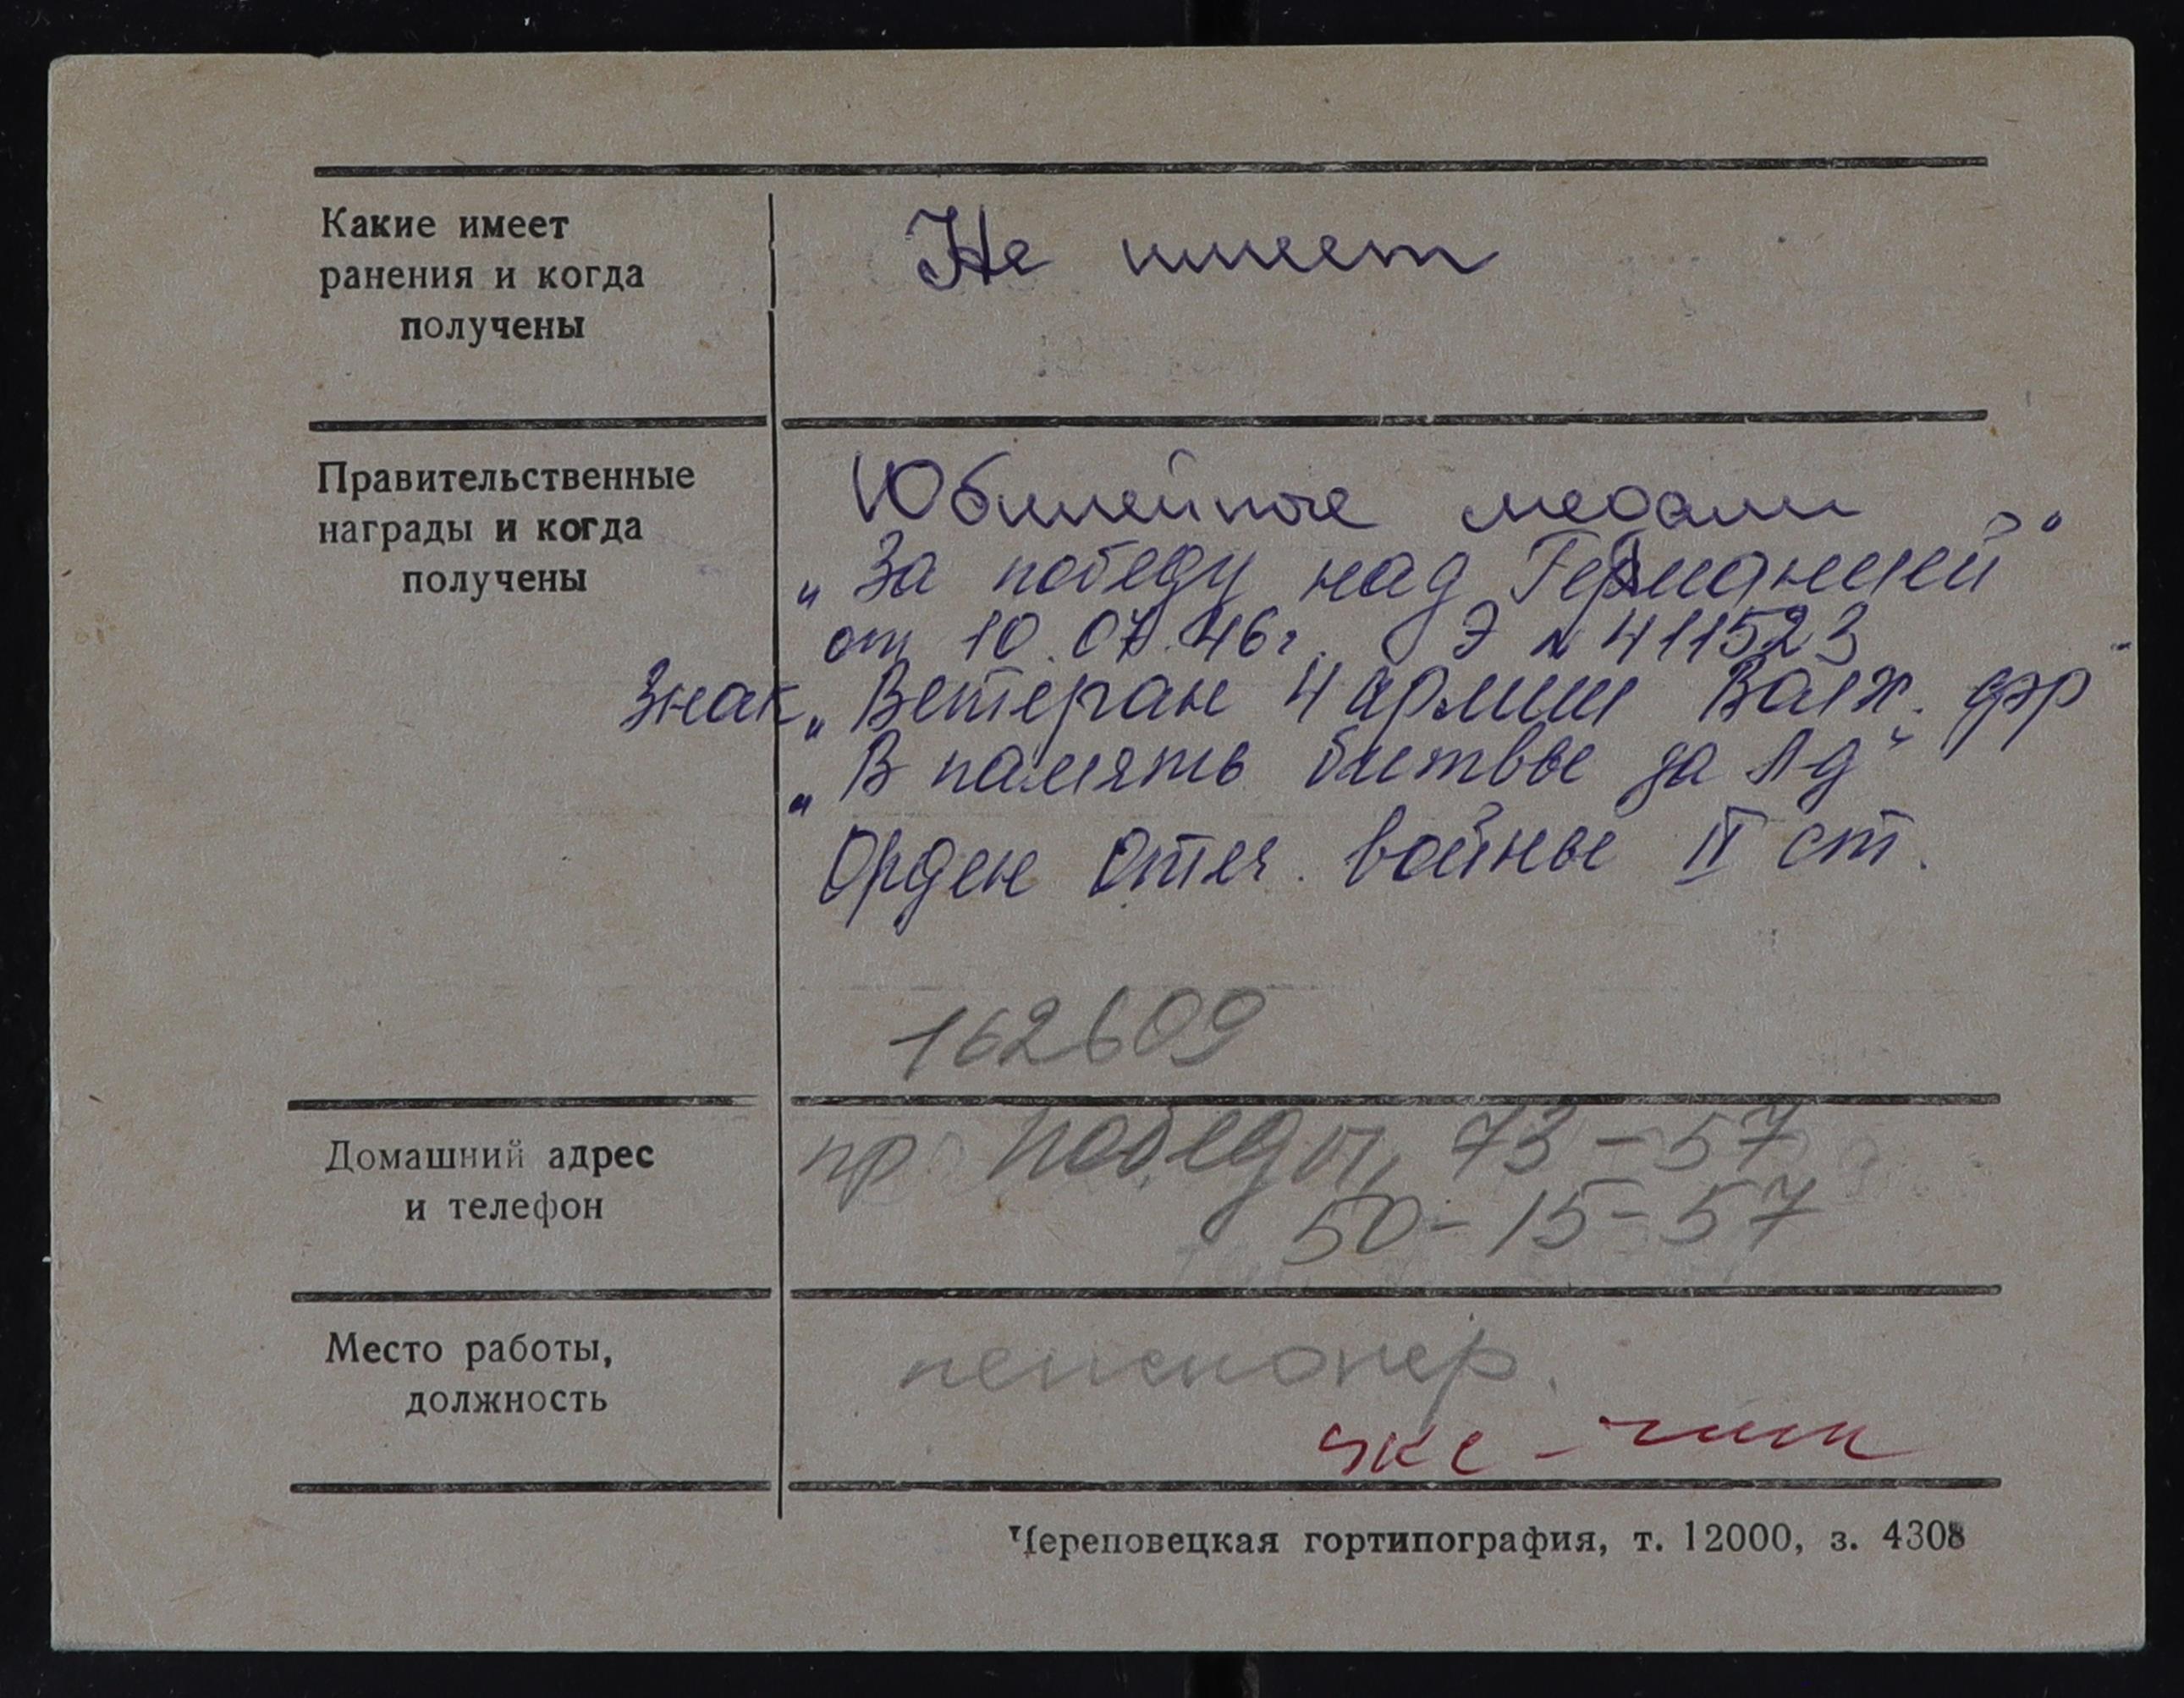 Какие имеет
ранения и когда
получены
Не имеет
Правительственные
награды и когда
получены
Юбилейные медали
„За победу над Германией"
от 10.07.46г. Э № 411523
Знак „Ветеран 4 армии Волх. фр"
„В память битвы за Лд"
Орден Отеч. войны II ст.
162609
Домашний адрес
и телефон
пр Победы, 73-57
50-15-57
Место работы,
должность
пенсионер.
Череповецкая гортипография, т. 12000, з. 4308